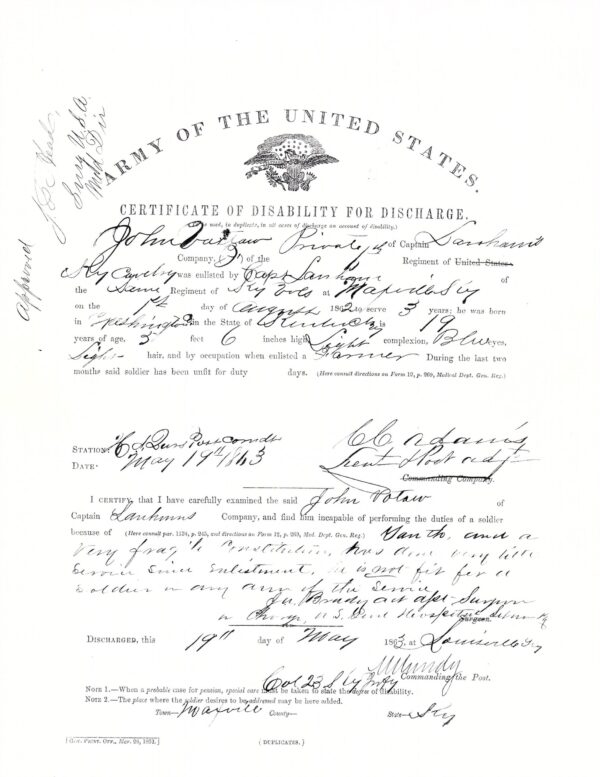 Approved
Surg U.S.A.
Med Dir
ARMY OF THE UNITED STATES.
CERTIFICATE OF DISABILITY FOR DISCHARGE.
(To be used, in duplicate, in all cases of discharge on account of disability.)
John Private of Captain Lanham's
Company, of the Regiment of United States
Ky Cavelry was enlisted by Capt Lanham of
the Same Regiment of Ky Vols at Maxville Ky
on the 1st day of August 1862 to serve 3 years; he was born
in Washington in the State of Kentucky is 19
years of age, 5 feet 6 inches high, Light complexion, Blue eyes,
Light hair, and by occupation when enlisted a Farmer During the last two
months said soldier has been unfit for duty days. (Here consult directions on Form 12, p. 269, Medical Dept. Gen. Reg.)
STATION: Hd Qurs Post Comdt
C C Adams
DATE: May 19th 1863
Lieut & Post Adjt
Commanding Company.
I CERTIFY, that I have carefully examined the said John Votaw of
Captain Lanhams Company, and find him incapable of performing the duties of a soldier
because of (Here consult par. 1134, p. 245, and directions on Form 12, p. 269, Med. Dept. Gen. Reg.) Youth, and a
very fragile Constitution, has done very little
Service Since Enlistment, He is not fit for a
Soldier in any arm of the Service
J. Brady act asst Surgeon
in Charge, U.S. Genl Hospital Lebanon Ky
Surgeon.
DISCHARGED, this 19th day of May 1863, at Louisville Ky
M Mundy
Commanding the Post.
Col 23 Ky Infty
NOTE 1.—When a probable case for pension, special care must be taken to state the degree of disability.
NOTE 2.—The place where the soldier desires to be addressed may be here added.
Town— Maxville County— State— Ky
[GOV. PRINT. OFF., Nov. 29, 1861.] (DUPLICATES.)